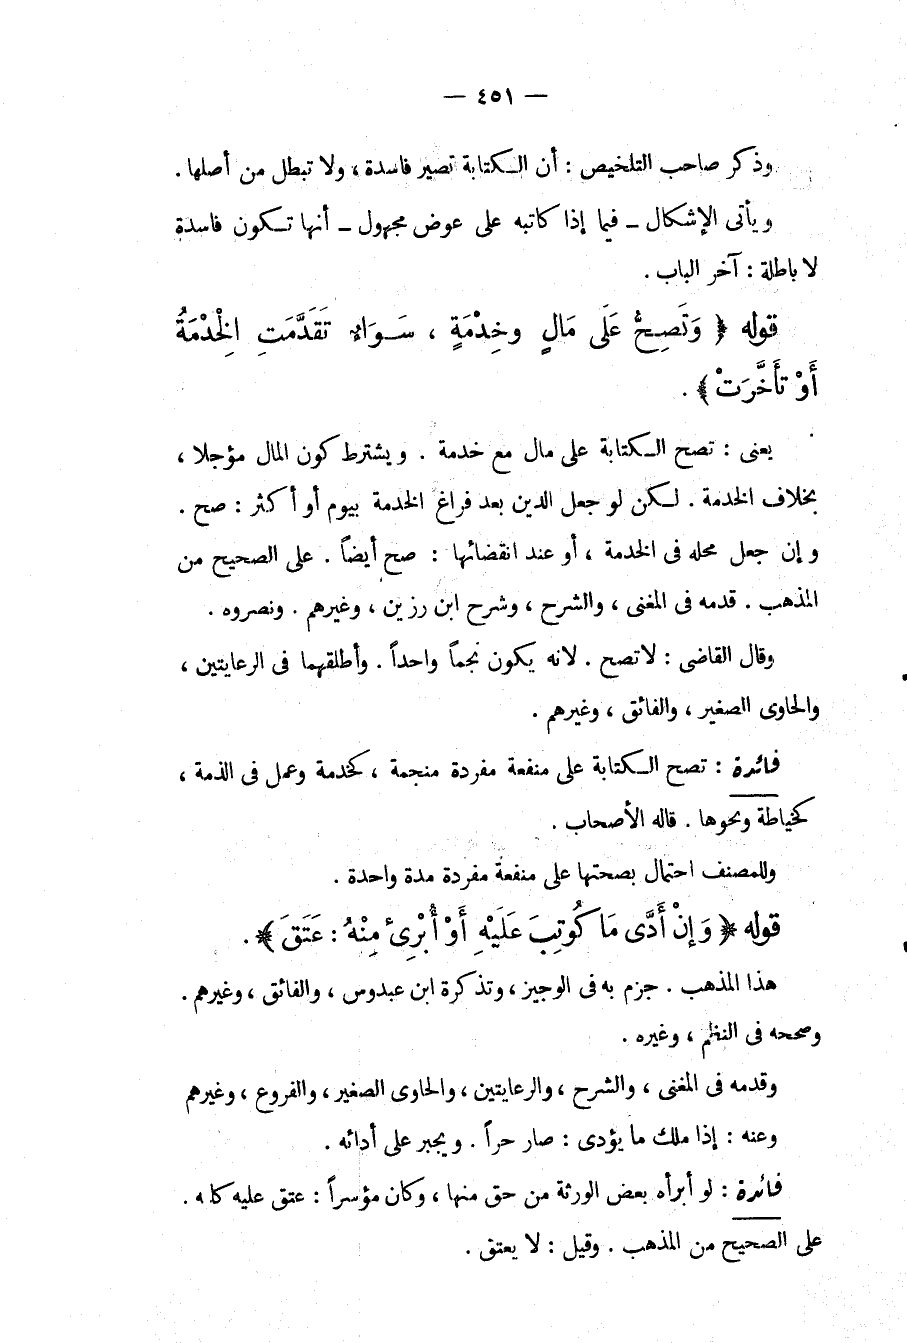 — ٤٥١ —
وذكر صاحب التلخيص : أن الكتابة تصير فاسدة ، ولا تبطل من أصلها .
ويأتى الإشكال – فيما إذا كاتبه على عوض مجهول – أنها تكون فاسدة
لا باطلة : آخر الباب .
قوله ﴿ وَتَصِحُّ عَلَى مَالٍ وخِدْمَةٍ ، سَوَاءٌ تَقَدَّمَتِ الْخِدْمَةُ
أَوْ تَأَخَّرَتْ ﴾ .
يعنى : تصح الكتابة على مال مع خدمة . ويشترط كون المال مؤجلا ،
بخلاف الخدمة . لكن لو جعل الدين بعد فراغ الخدمة بيوم أو أكثر : صح .
وإن جعل محله فى الخدمة ، أو عند انقضائها : صح أيضاً . على الصحيح من
المذهب . قدمه فى المغنى ، والشرح ، وشرح ابن رزين ، وغيرهم . ونصروه .
وقال القاضى : لا تصح . لانه يكون نجماً واحداً . وأطلقهما فى الرعايتين ،
والحاوى الصغير ، والفائق ، وغيرهم .
فائدة : تصح الكتابة على منفعة مفردة منجمة ، كخدمة وعمل فى الذمة ،
كخياطة ونحوها . قاله الأصحاب .
وللمصنف احتمال بصحتها على منفعة مفردة مدة واحدة .
قوله ﴿ وَإِنْ أَدَّى مَا كُوتِبَ عَلَيْهِ أَوْ أُبْرِئَ مِنْهُ : عَتَقَ ﴾ .
هذا المذهب . جزم به فى الوجيز ، وتذكرة ابن عبدوس ، والفائق ، وغيرهم .
وصححه فى النظم ، وغيره .
وقدمه فى المغنى ، والشرح ، والرعايتين ، والحاوى الصغير ، والفروع ، وغيرهم
وعنه : إذا ملك ما يؤدى : صار حراً . ويجبر على أدائه .
فائدة : لو أبرأه بعض الورثة من حق منها ، وكان مؤسراً : عتق عليه كله .
على الصحيح من المذهب . وقيل : لا يعتق .